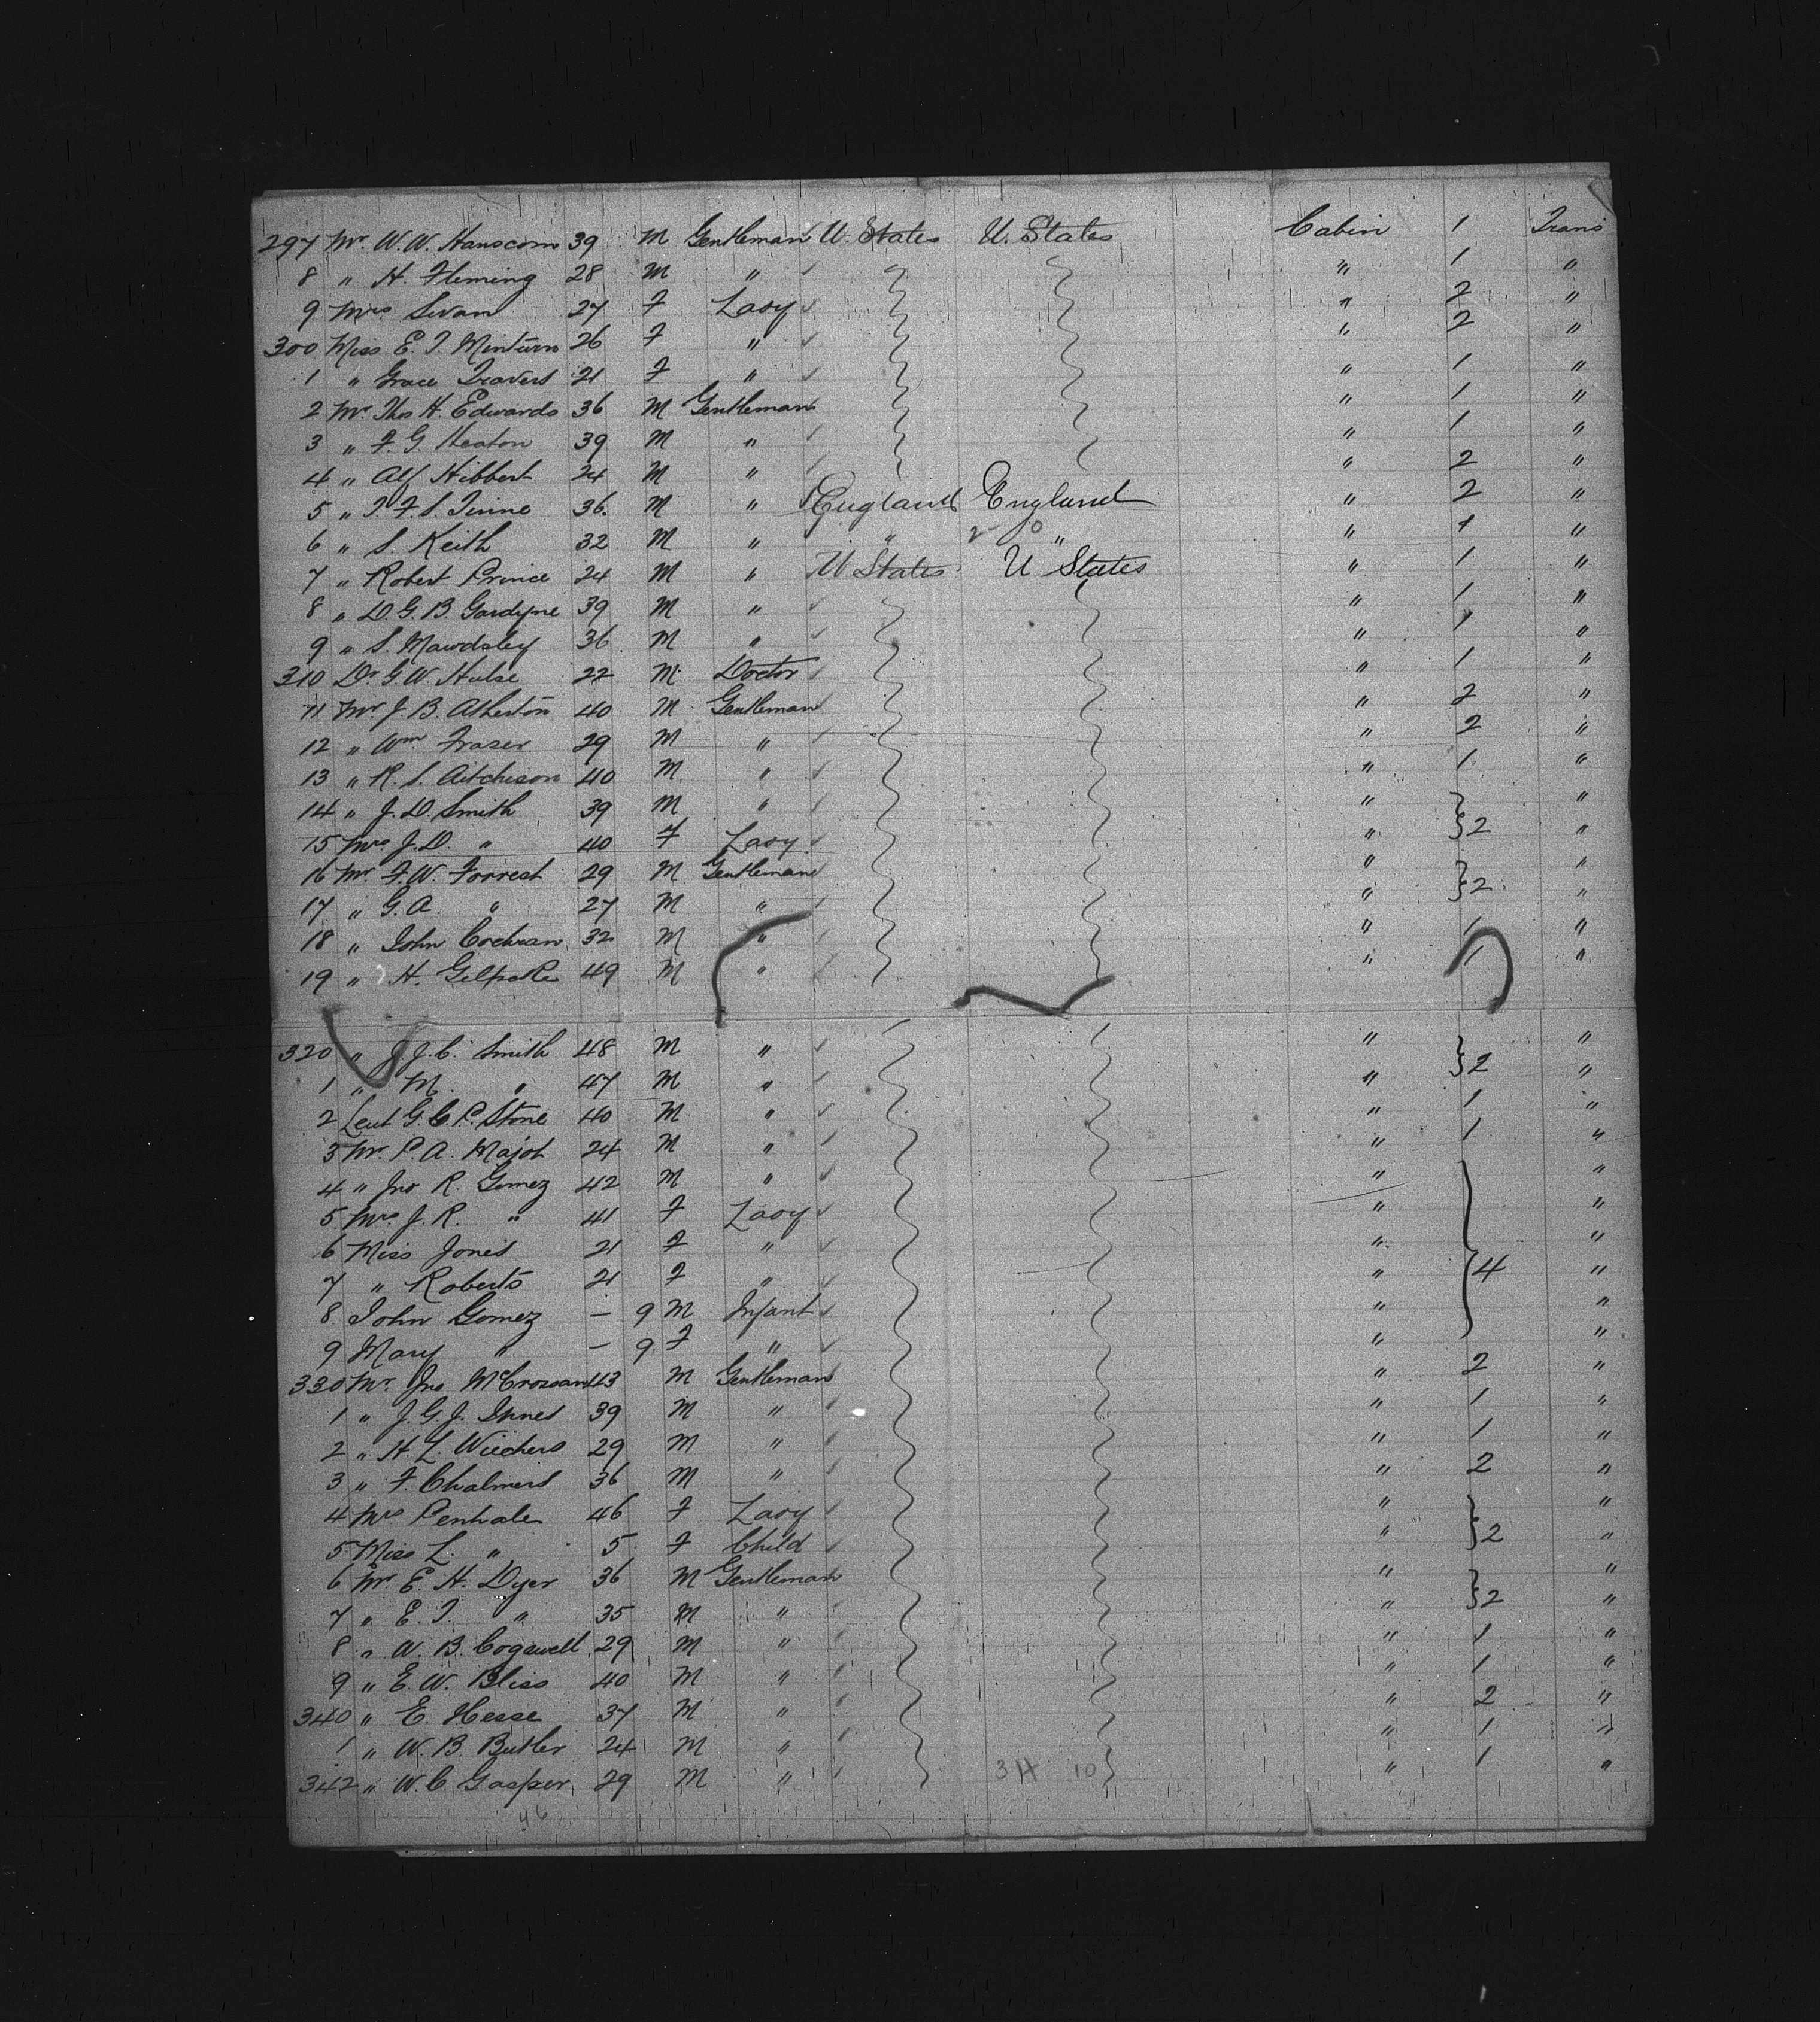 297 Mr. W. W. Hanscom 39 M Gentleman U. States U. States Cabin 1 Trans
8 " H. Fleming 28 M " " 1 "
9 Mrs Swan 27 F Lady " 2 "
300 Miss E. T. Minturn 26 F " " 2 "
1 " Grace Travers 21 F " " 1 "
2 Mr. Thos H. Edwards 36 M Gentleman " 1 "
3 " F. G. Heaton 39 M " " 1 "
4 " Alf Hibbert 24 M " " 2 "
5 " T. F. S. Tinne 36. M " England England " 2 "
6 " S. Keith 32 M " " " " 1 "
7 " Robert Prince 24 M " U States U States " 1 "
8 " D. G. B. Gardyne 39 M " " 1 "
9 " S. Mawdsley 36 M " " 1 "
310 Dr G. W. Hulse 22 M Doctor " 1 "
11 Mr J. B. Atherton 40 M Gentleman " 2 "
12 " Wm Fraser 29 M " " 2 "
13 " R. S. Aitchison 40 M " " 1 "
14 " J. D. Smith 39 M " " "
15 Mrs J. D. " 40 F Lady " }2 "
16 Mr. F. W. Forrest 29 M Gentleman " "
17 " G. A. " 27 M " " }2 "
18 " John Cochran 32 M " " 1 "
19 " H. 49 M " " 1 "
320 " J. J. C. Smith 48 M " " "
1 " M. " 47 M " " }2 "
2 Leut G. C. P. Stone 40 M " " 1 "
3 Mr. P. A. Major 24 M " " 1 "
4 " Jno R. Gomez 42 M " " "
5 Mrs J. R. " 41 F Lady " "
6 Miss Jones 21 F " " "
7 " Roberts 21 F " " }4 "
8 John Gomez — 9 M Infant " "
9 Mary " — 9 F " " "
330 Mr. Jno McCrossan 43 M Gentleman " 2 "
1 " J. G. J. Innes 39 M " " 1 "
2 " H. L. Wiechers 29 M " " 1 "
3 " F. Chalmers 36 M " " 2 "
4 Mrs Penhale 46 F Lady " "
5 Miss L. " 5 F Child " }2 "
6 Mr. E. H. Dyer 36 M Gentleman " "
7 " E. T. " 35 M " " }2 "
8 " W. B. Cogswell 29 M " " 1 "
9 " E. W. Bliss 40 M " " 1 "
340 " E. Hesse 37 M " " 2 "
1 " W. B. Butler 24 M " " 1 "
342 " W. C. Gasper 29 M " 34 10 " 1 "
46